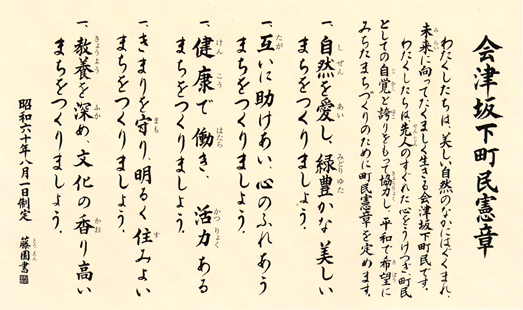 会津坂下町民憲章
わたくしたちは、美しい自然のなかにはぐくまれ、
未来に向ってたくましく生きる会津坂下町民です。
わたくしたちは、先人のすぐれた心をうけつぎ、町民
としての自覚と誇りをもって協力し、平和で希望に
みちたまちづくりのために町民憲章を定めます。
一、自然を愛し、緑豊かな美しい
まちをつくりましょう。
一、互いに助けあい、心のふれあう
まちをつくりましょう。
一、健康で働き、活力ある
まちをつくりましょう。
一、きまりを守り、明るく住みよい
まちをつくりましょう。
一、教養を深め、文化の香り高い
まちをつくりましょう。
昭和六十年八月二日制定 藤園書